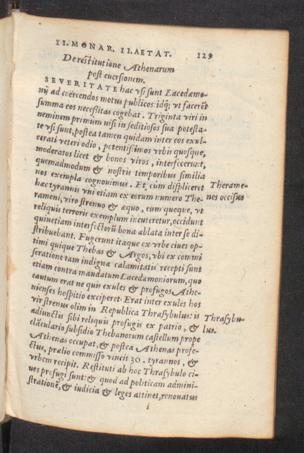 II. MONAR. II. AETAT. 129
De restitutione Athenarum
post euersionem.
SEVERITATE hac usi sunt Lacedæmo-
nij ad coërcendos motus publicos: idq; ut facerẽt
summa eos necessitas cogebat. Triginta uiri in
neminem primum nisi in seditiosos sua potesta-
te usi sunt, postea tamen quidam inter eos exul-
cerati ueteri odio, potentissimos urbis quosque,
moderatos licet & bonos uiros, interfecerunt,
quemadmodum & nostris temporibus similia
nos exempla cognouimus. Et cùm displiceret
hæc tyrannis uni etiam ex eorum numero The-
rameni, uiro strenuo & æquo, eum quoque, ut
reliquis terrorem exemplum incuteretur, occidunt
quiuetiam interfectorũ bona ablata inter se di-
stribuebant. Fugerunt itaque ex urbe ciues op-
timi quique Thebas & Argos, ubi ex commi
seratione tam indignæ calamitatis recepti sunt
etiam contra mandatum Lacedæmoniorum, quo
cautum erat ne quis exules & profugos Athe-
nienses hospitio exciperet. Erat inter exules hos
uir strenuus olim in Republica Thrasybulus: is
adiunctis sibi reliquis profugis ex patria, &
clàculario subsidio Thebanorum castellum prope
Athenas occupat, & postea Athenas profe-
ctus, prælio commisso uincit 30. tyrannos, &
urbem recipit. Restituti ab hoc Thrasybulo ci-
ues profugi sunt: & quod ad politicam admini-
strationẽ, & iudicia & leges attinet, renouatus
i
Therame-
nes occisus
Thrasybu-
lus.